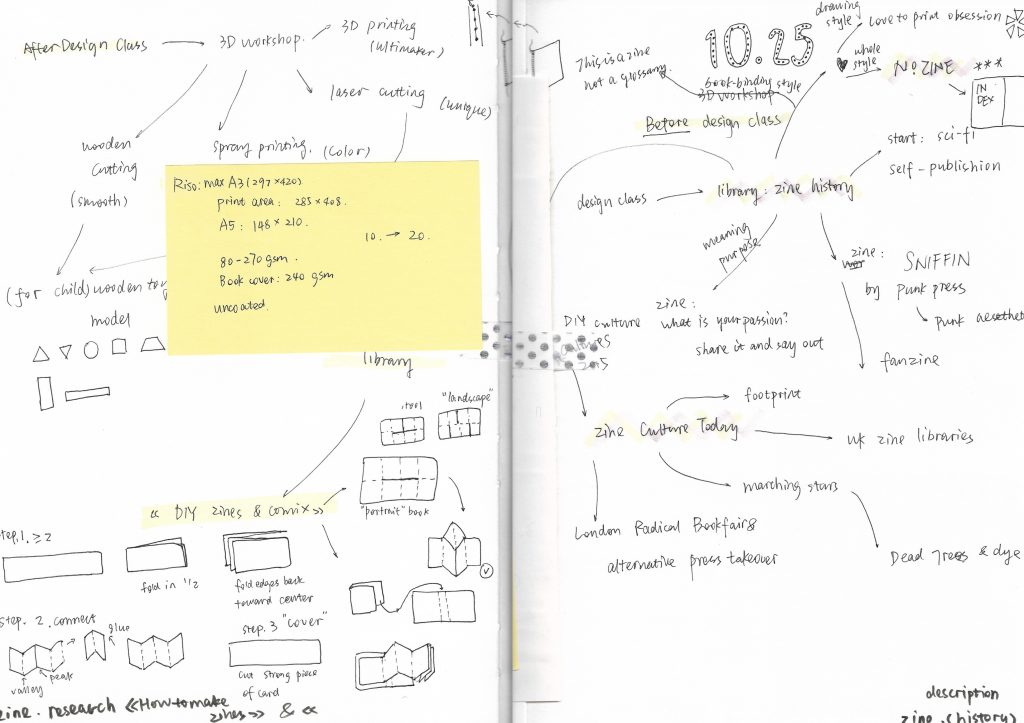 After Design Class
3D workshop.
3D printing
(Ultimaker)
laser cutting
(unique)
wooden
cutting
(smooth)
spray printing. (color)
(for child) wooden toy
model
Riso: max A3 (297×420)
print area: 285×408.
A5: 148×210.
10. → 20.
80-270 gsm.
Book cover: 240 gsm
uncoated.
library
"landscape"
"portrait" book
« DIY zines & comix »
step.1. ≥2
fold in 1/2
fold edges back
toward center
step. 2. connect
glue
valley
peak
step.3 "cover"
cut strong piece
of card
zine. research «How to make
zines» & «
This is a zine
not a glossary.
10.25
drawing
style
Love to print obsession
whole
style
No ZINE ***
IN
DEX
book-binding style
3D workshop
Before design class
start: sci-fi
self-publishion
design class
library: zine history
meaning
purpose
zine: SNIFFIN
by punk press
punk aesthet
fanzine
zine:
what is your passion?
share it and say out
DIY culture
zine Culture Today
footprint
uk zine libraries
marching stars
London Radical Bookfair &
alternative press takeover
Dead Trees & dye
description
zine. <history>